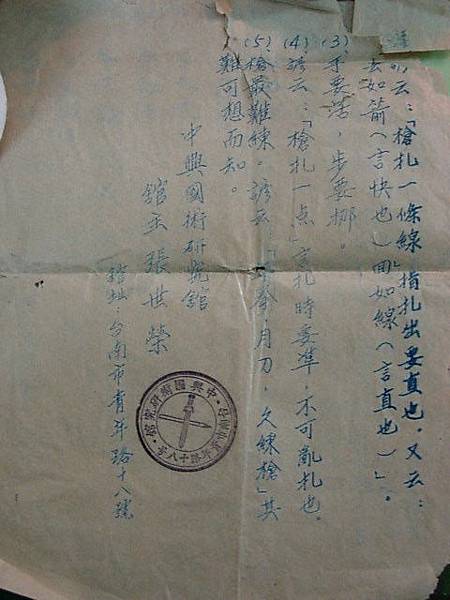 云：「槍扎一條線」指扎出要直也。又云：
去如箭（言快也）回如線（言直也）」。
(3)手要活，步要挪。
(4)諺云：「槍扎一点」言扎時要準，不可亂扎也。
(5)槍最難練。諺云「拳月刀，久練槍」其
難可想而知。
中興國術研究館
館主 張世榮
館址：台南市青年路十八號
中興國術研究館
台南市青年路十八号